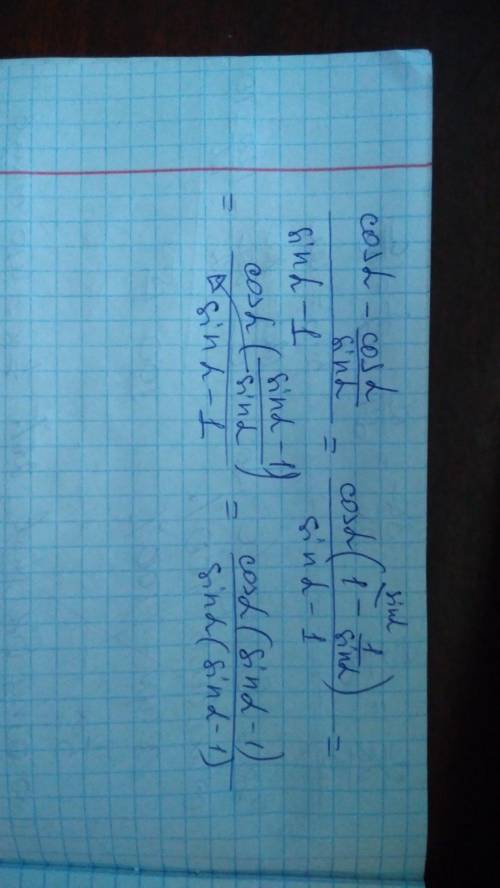 (cosα - cosα/sinα)/(sinα - 1) = (cosα(1 sinα - 1/sinα))/(sinα - 1) =
= (cosα((sinα - 1)/sinα))/(sinα - 1) = (cosα(sinα - 1))/(sinα(sinα - 1))